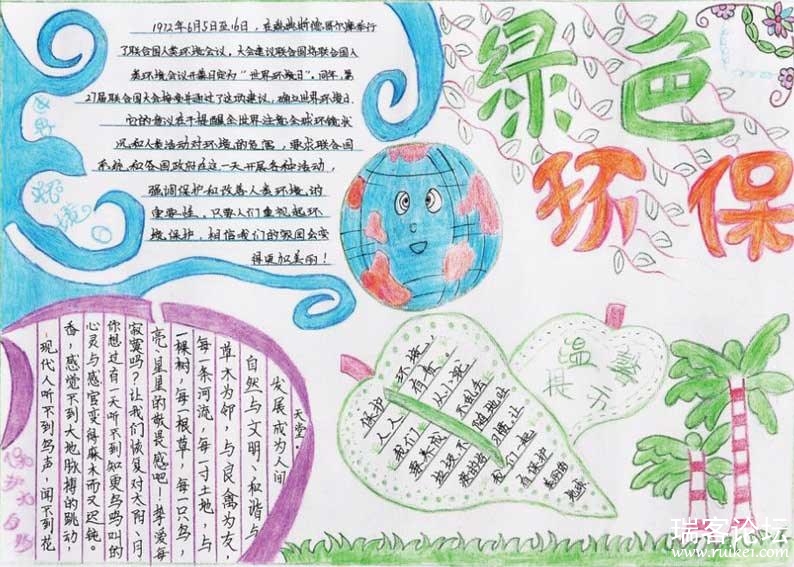 绿色
环保
1972年6月5日至16日，在斯德哥尔摩举行
了联合国人类环境会议，大会建议联合国将联合国人
类环境会议开幕日定为“世界环境日”。同年，第
27届联合国大会接受并通过了这项建议，确立世界环境日.
它的意议在于提醒全世界注意全球环境状
况和人类活动对环境的危害，要求联合国
系统和各国政府在这一天开展各种活动，
强调保护和改善人类环境的
重要性，只要人们重视起环
境保护，相信我们的祖国会变
得更加美丽！
世界
环境
日
温馨
提示
环境
保护
有责
人人
从小就
我们
要养成
不乱丢
随地吐
垃圾不
习惯让
我们一起
去保护
美丽的
地球
天堂。
发展成为人间
自然与文明、和谐与
草木为邻，与良禽为友，
每一条河流，每一寸土地，与
一棵树，每一根草，每一只鸟，
亮、星星的敬畏感吧！挚爱每
寂寞吗？让我们恢复对太阳、月
你想过有一天听不到知更鸟鸣叫的
心灵与感官变得麻木而又迟钝。
香，感觉不到大地脉搏的跳动
现代人听不到鸟声，闻不到花
保护大自然
瑞客论坛
www.ruikei.com